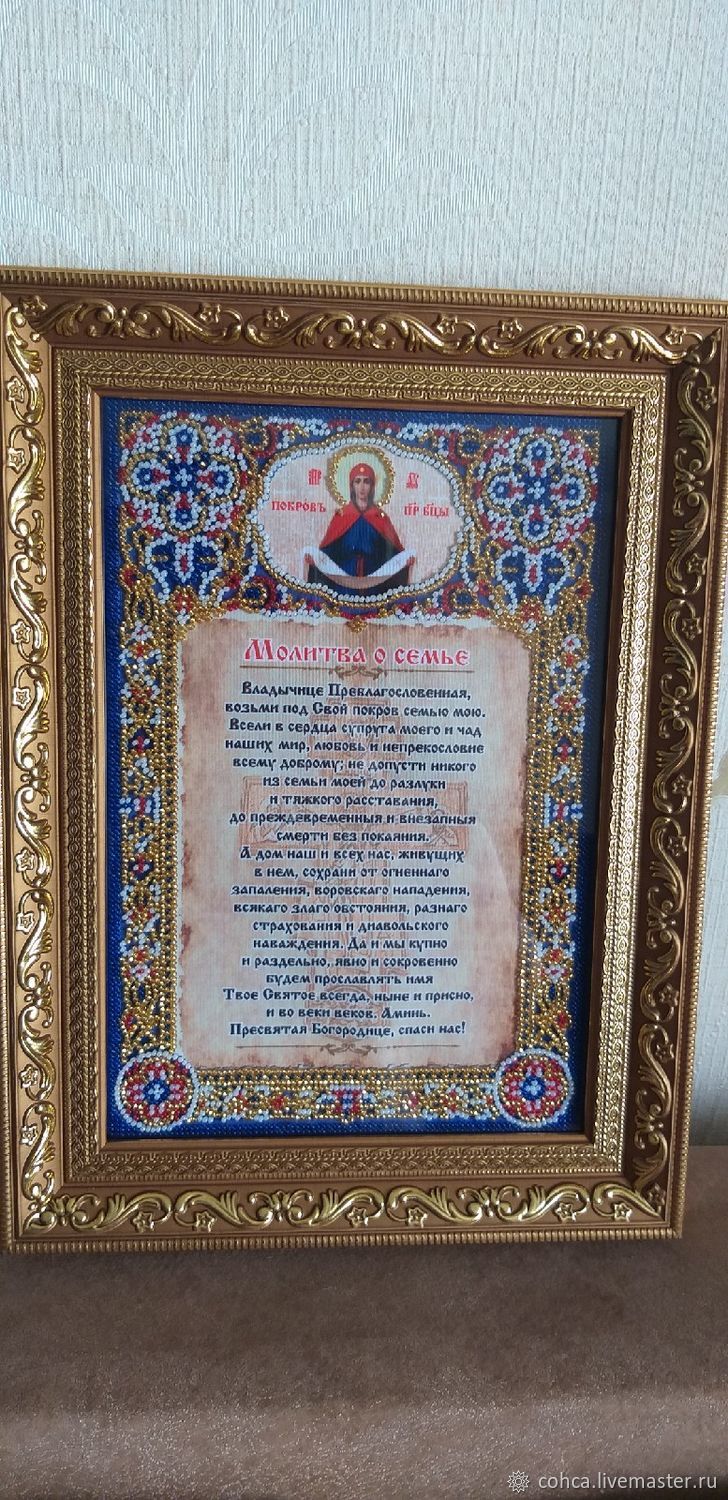 МР ѲУ
ПОКРОВЪ ПР БЦЫ
Молитва о семье
Владычице Преблагословенная,
возьми под Свой покров семью мою.
Всели в сердца супруга моего и чад
наших мир, любовь и непрекословие
всему доброму; не допусти никого
из семьи моей до разлуки
и тяжкого расставания,
до преждевременныя и внезапныя
смерти без покаяния.
А дом наш и всех нас, живущих
в нем, сохрани от огненнаго
запаления, воровскаго нападения,
всякаго злаго обстояния, разнаго
страхования и диавольского
наваждения. Да и мы купно
и раздельно, явно и сокровенно
будем прославлять имя
Твое Святое всегда, ныне и присно,
и во веки веков. Аминь.
Пресвятая Богородице, спаси нас!
cohca.livemaster.ru